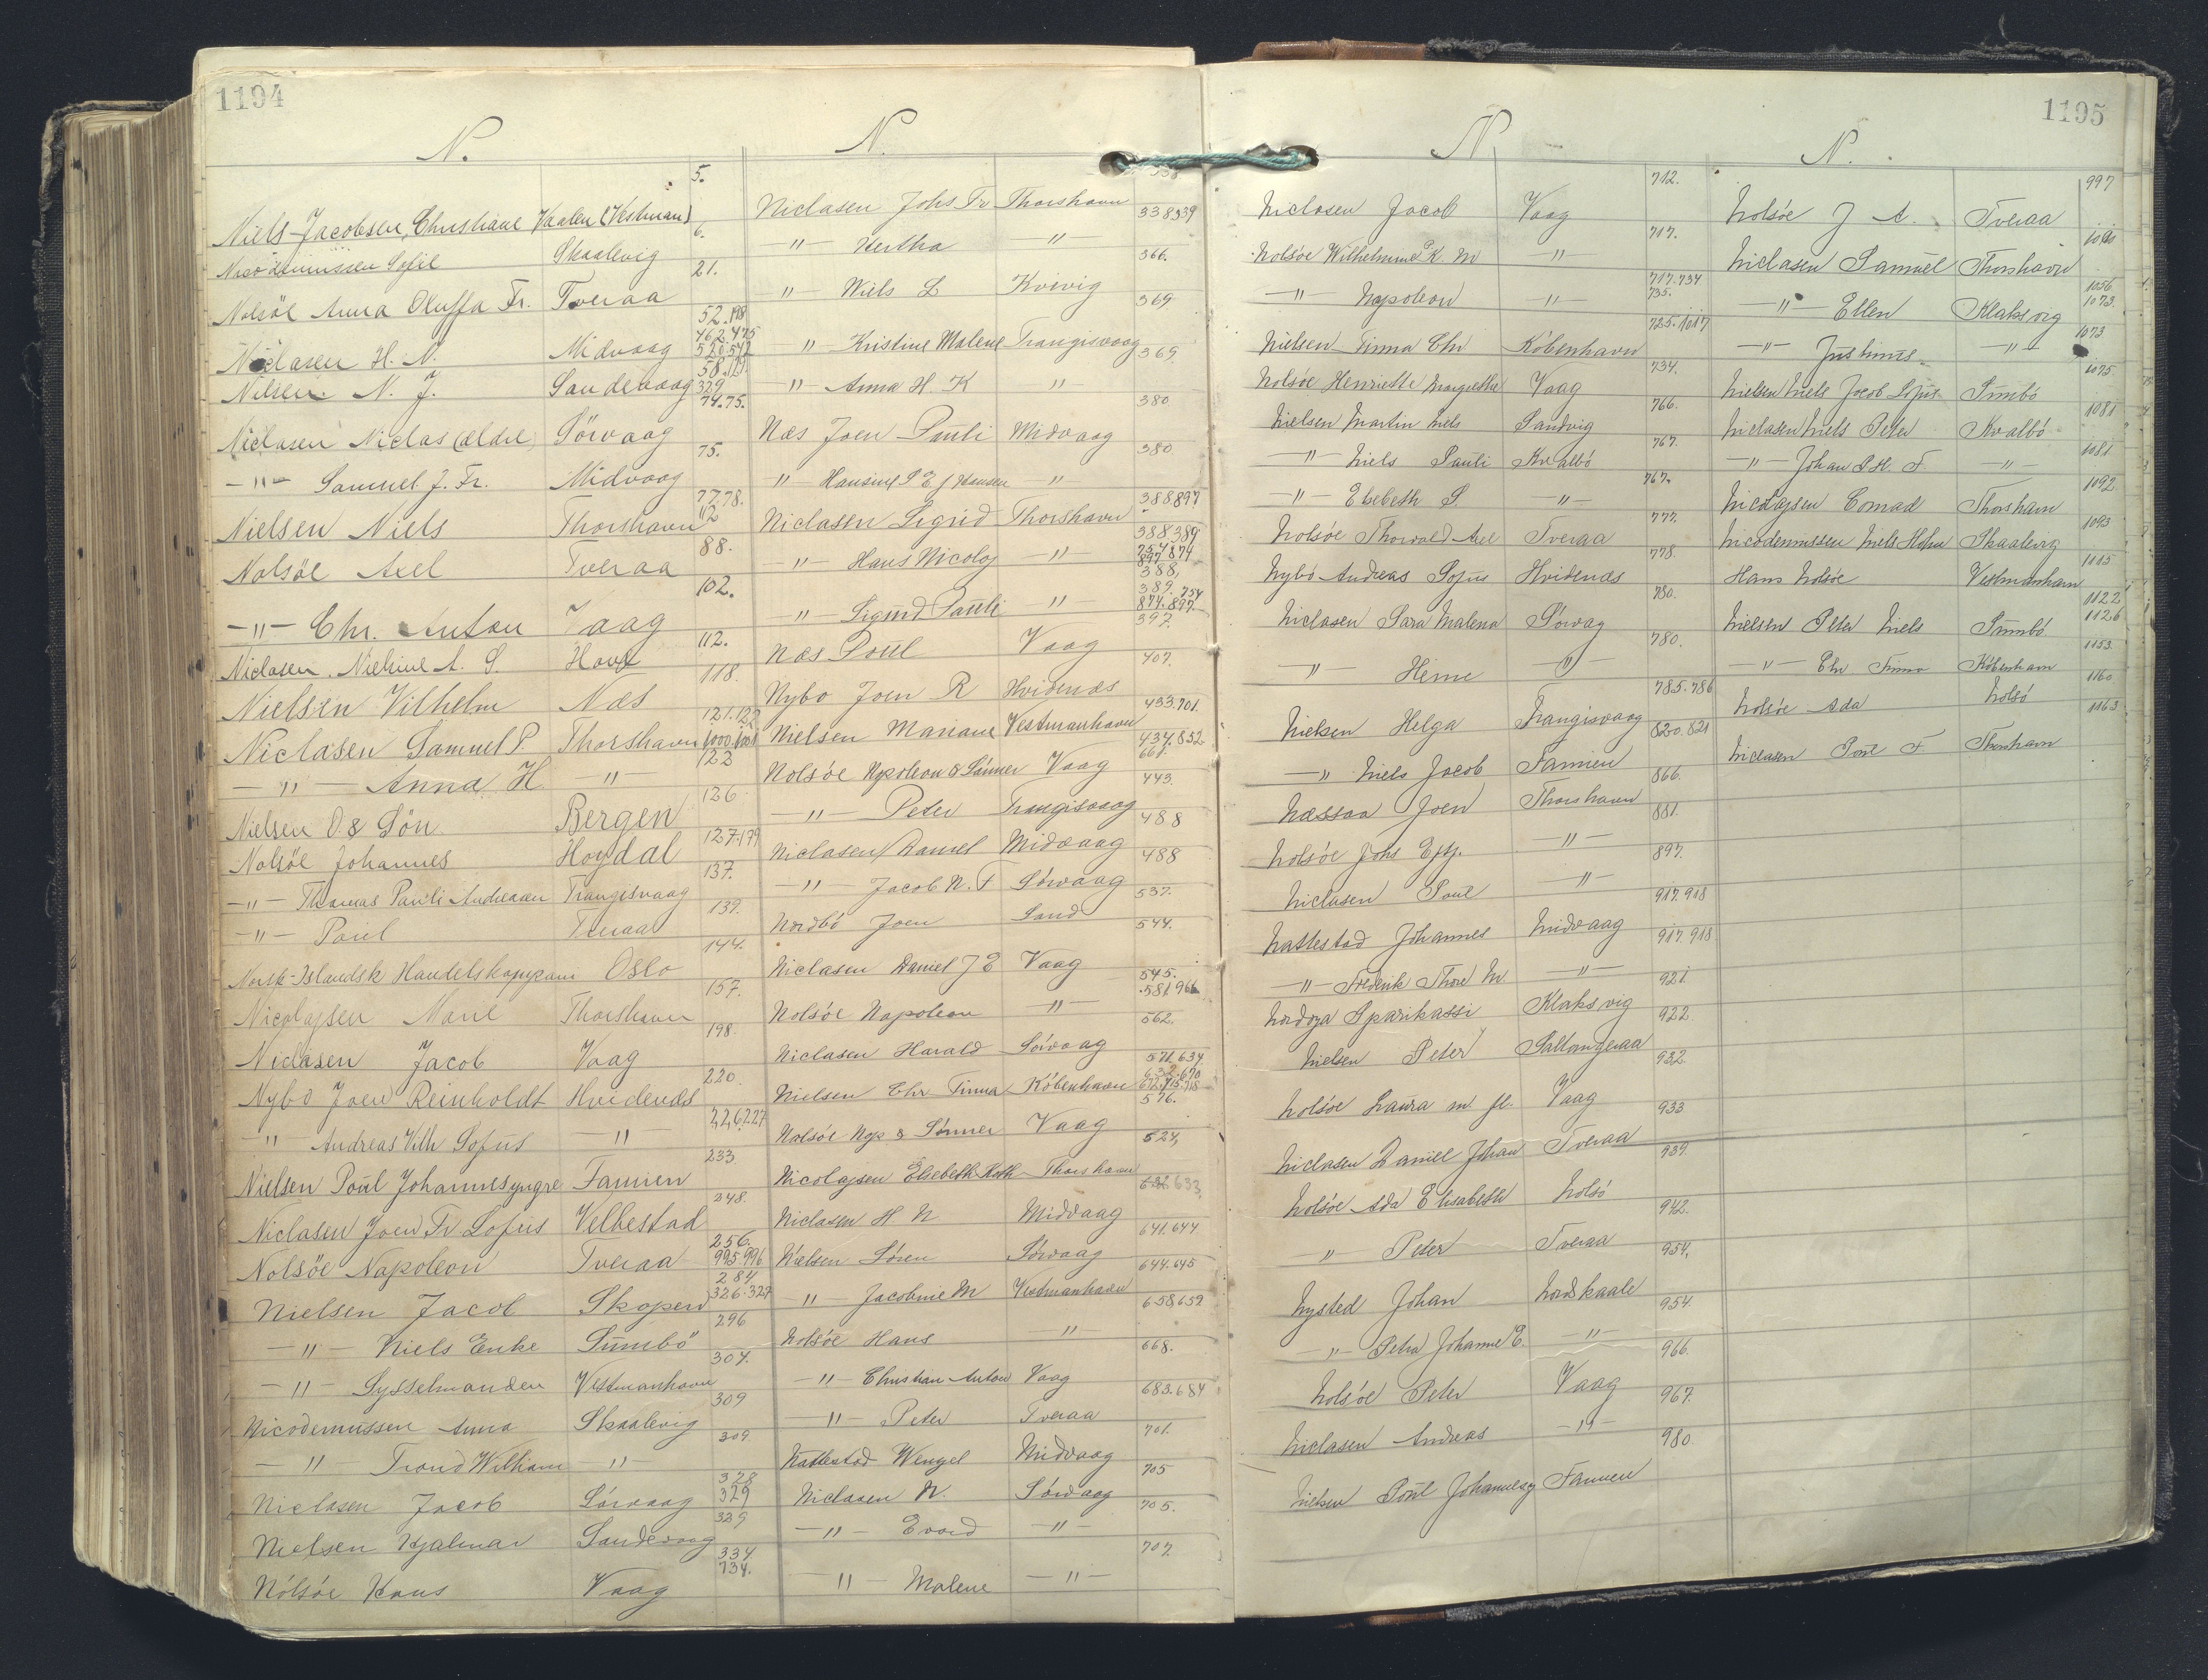 1194
N.
5.
Niels-Jacobsen, Christiane Vaalen (Vestman)
6.
Nicodemussen Sofie Skaalevig
21.
Nolsöe Anna Oluffa Fr. Tveraa
52.
462.475
Niclasen H. N. Midvaag
58.
Nilsen N. J. Sandevaag 329
74.75.
Niclasen Niclas (ældre) Sörvaag
75.
-"- Samuel J. Fr. Midvaag
77.78.
Nielsen Niels Thorshavn 112
88.
Nolsöe Axel Tveraa
102.
-"- Chr. Anton Vaag
112.
Niclasen. Nielsine A. S. Hove
118.
Nielsen Vilhelm Næs
121.122
Niclasen Samuel P. Thorshavn 1000.1001
122
-"- Anna H. "
126
Nielsen O. & Sön Bergen
127.179
Nolsöe Johannes Hoydal
137.
-"- Thomas Pauli Andreasen Trangisvaag
139.
-"- Poul Tveraa
144.
Norsk-Islandsk Handelskompani Oslo
157.
Nicolajsen Marie Thorshavn
198.
Niclasen Jacob Vaag
220.
Nybo Joen Reinholdt Hvidenæs
226.227
" Andreas Vilh Sofus -"-
233
Nielsen Poul Johannes yngre Famien
248.
Niclasen Joen Fr. Sofus Velbestad
256.
Nolsöe Napoleon Tveraa 995.996
284
Nielsen Jacob Skopen 326.327
296
-"- Niels Enke Sumbö
304.
-"- Sysselmanden Vestmanhavn
309
Nicodemussen Anna Skaalevig
309.
-"- Trond William -"-
328
Niclasen Jacob Sörvaag 329
329
Nielsen Hjalmar Sandevaag
334
734.
Nólsóe Hans Vaag
N.
Niclasen Johs Fr Thorshavn 338339
-"- Hertha " 366.
" Niels L Kvivig 369
" Kristine Malene Trangisvaag 369
-"- Anna H. K " 380
Næs Joen Pauli Midvaag 380
" Hansine P E f Hansen " 388897
Niclasen Sigrid Thorshavn
388389
754874
-"- Hans Nicolaj -"- 897
388,
389. 754
-"- Sigurd Pauli -"- 874.897.
392
Næs Poul Vaag 407.
Nybo Joen R Hvidenæs 433.701.
Nielsen Mariane Vestmanhavn
437.852
661.
Nolsóe Napoleon & Sónner Vaag 443.
-"- Peter Trangisvaag 488
Niclasen Daniel Midvaag 488
-"- Jacob N. F Sórvaag 537.
Nordbó Joen Sand 544.
Niclasen Daniel J E Vaag
545.
581966
Nolsóe Napoleon -"- 562.
Niclasen Harald Sórvaag
571.634
632.670
Nielsen Chr Tinna Kóbenhavn
576.
Nolsóe Nap & Sónner Vaag
Nicolajsen Elsebeth Kath Thorshavn 633.
Niclasen H N. Midvaag 641.644
Nielsen Sóren Sórvaag 644.645
-"- Jacobine M Vestmanhavn 658.659
Nolsóe Hans " 668.
-"- Christian Anton Vaag 683.684
-"- Peter Tveraa 701.
Nattestad Wenzel Midvaag 705
Niclasen N. Sórvaag 705.
-"- Evald -"- 707.
-"- Malene -"-
N.
712.
Niclasen Jacob Vaag
717.
Nolsóe Wilhelmine P. K. M -"-
717.734
735.
-"- Napoleon -"-
725.1017
Nielsen Tinna Chr Kóbenhavn
734.
Nolsóe Henriette Margrethe Vaag
766.
Nielsen Martin Niels Sandvig
767.
-"- Niels Pauli Kvalbó
767.
-"- Elsebeth S. -"-
777.
Nolsóe Thorvald Axel Tveraa
778.
Nybo Andreas Sofus Hvidenæs
780.
Niclasen Sara Malena Sórvag
780.
" "
785.786
Nielsen Helga Trangisvaag
820.821
-"- Niels Jacob Famien
866.
Næssaa Joen Thorshavn
881.
Nolsóe Johs Eftf. -"-
897.
Niclasen Poul -"-
917.918
Nattestad Johannes Midvaag
917.918
-"- Frederik Thore M. -"-
921.
Nordoya Sparikassi Klaksvig
922.
Nielsen Peter Saltangeraa
932
Nolsóe Laura m. fl. Vaag
933
Niclasen Daniel Johan Tveraa
939.
Nolsóe Ada Elisabeth Nolsó
942.
" Peter Tveraa
954.
Nysted Johan Nordskaale
954.
-"- Petra Johanne E. -"-
966.
Nolsóe Peter Vaag
967.
Niclasen Andreas -"-
980.
Nielsen Poul Johannes y Famien
1195
N.
997
Nolsóe J A. Tveraa
Niclasen Samuel Thorshavn
1056
1073.
-"- Ellen Klaksvig
1073
-"- Justinus -"-
1075
Nielsen Niels Jacob Sofus Sumbó
1081
Niclasen Niels Peter Kvalbó
1081
-"- Johan P. H. F. -"-
1092
Nicolajsen Conrad Thorshavn
1093
Nicodemussen Niels Skaalevig
1115
Hans Nolsóe Vestmanhavn
1122
1126
Nielsen Peter Niels Sumbó
1153.
-"- Chr Tinna Kóbenhavn
1160
Nolsóe Ada Nolsó
1163
Niclasen Poul F Thorshavn